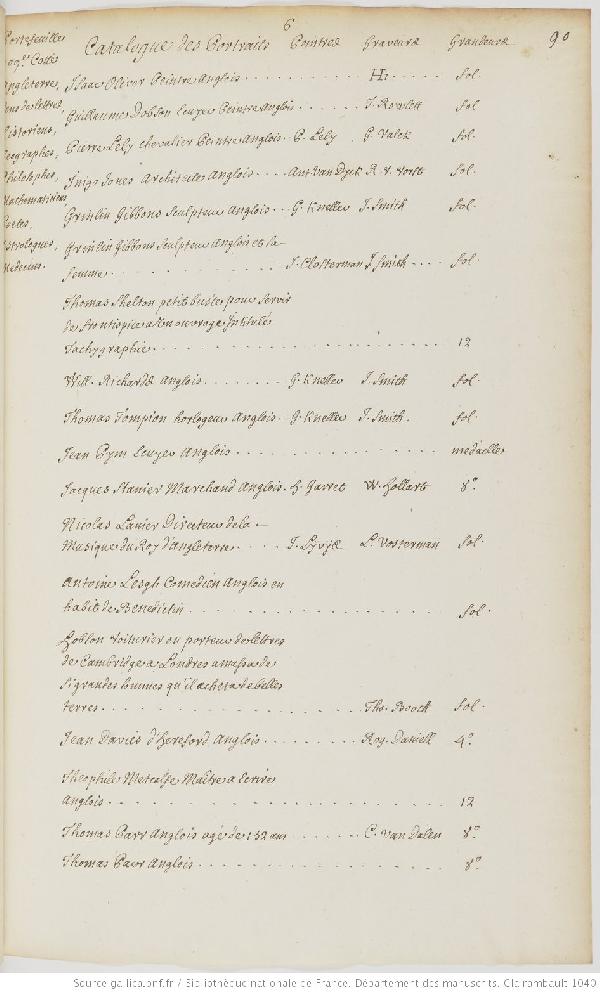 6
90
Catalogue des Portraits Peintres Graveurs Grandeurs
Portefeuilles
Cottes
Angleterre,
Gens de lettres,
Historiens,
Geographes,
Philosophes,
Mathematiciens,
Poetes,
Astrologues,
Medecins.
Isaac Oliver Peintre Anglois . . . . . . . . H. fol.
Guillaume Dobson Peintre Anglois . . . . . . fol
Pierre Lely chevalier Peintre Anglois. P. Lely G. Valck fol.
Inigo Jones Architecte Anglois . . . . Ant. Van Dyck R. V. Vorst fol.
Grinlin Gibbons Sculpteur Anglois . . G. Kneller J. Smith fol.
Grinlin Gibbons Sculpteur Anglois et sa
femme . . . . . . . . . J. Closterman J. Smith . . . . fol.
Thomas Shelton petit buste pour servir
de frontispice a son ouvrage Intitulé
Tachygraphie . . . . . . . . . . . . . . 12
Will. Richards Anglois . . . . . . . G. Kneller J. Smith fol.
Thomas Tompion horlogeur Anglois . G. Kneller J. Smith. fol.
Jean Pym Anglois . . . . . . . . . . . . medailles
Jacques Stanier Marchand Anglois. H. Garret W. Hollart 8°
Nicolas Lanier Directeur de la
Musique du Roy d'angleterre . . . . J. Lyvyus L. Vosterman fol.
Antoine Leigh Comedien Anglois en
habit de Benedictin . . . . . . . . . . . . . fol.
Hobson Voiturier ou porteur de lettres
de Cambridge a Londres amassa de
si grandes sommes qu'il acheta de belles
terres . . . . . . . . . . . . . . . . fol.
Jean Davies d'hereford Anglois . . . . . . . 4°
Theophile Metcalfe Maitre a Ecrire
Anglois . . . . . . . . . . . . . . . . . . 12
Thomas Parr Anglois agé de 152 ans . . . . . . C. Van Dalen 8°
Thomas Parr Anglois . . . . . . . . . . . . . 8°
Source gallica.bnf.fr / Bibliothèque nationale de France. Département des manuscrits. Clairambault 1040